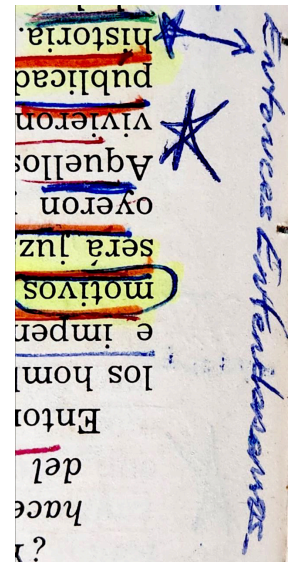 ¿Y
hace
del
Enton
los homb
e impen
motivos
será juz
oyeron
Aquellos
vivieron
publicad
historia.
Entonces